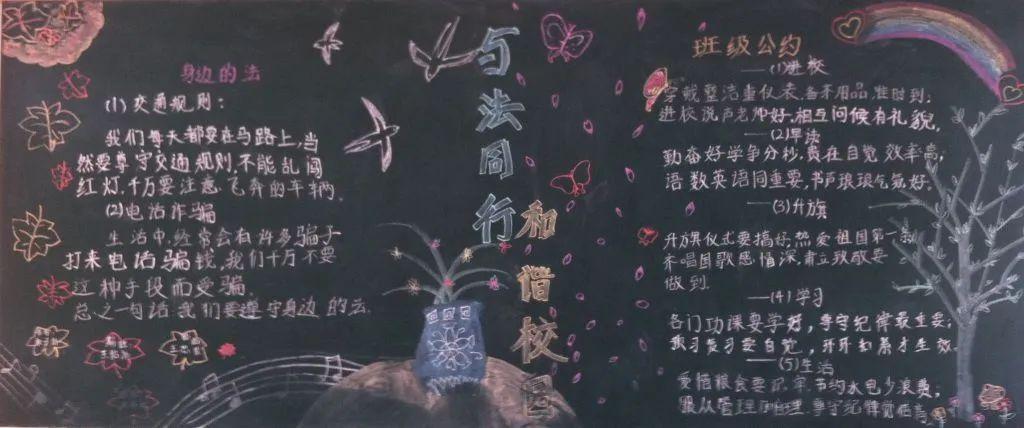 身边的法
(1)交通规则：
我们每天都要在马路上,当
然要尊守交通规则,不能乱闯
红灯,千万要注意飞奔的车辆。
(2)电话诈骗
生活中,经常会有许多骗子
打来电话骗钱,我们千万不要
这种手段而受骗。
总之一句话:我们要遵守身边的法。
与法同行
和谐校园
班级公约
——(1)进校
穿戴整洁重仪表,备齐用品准时到;
进校说声老师好,相互问候有礼貌,
——(2)早读
勤奋好学争分秒,贵在自觉效率高;
语数英语同重要,书声琅琅气氛好.
——(3)升旗
升旗仪式要搞好,热爱祖国第一条
齐唱国歌感情深,肃立致敬要
做到.
——(4)学习
各门功课要学好,尊守纪律最重要;
预习复习要自觉,
才生效
——(5)生活
爱惜粮食要记牢,节约水电少浪费,
服从管理 尊守纪律觉悟高